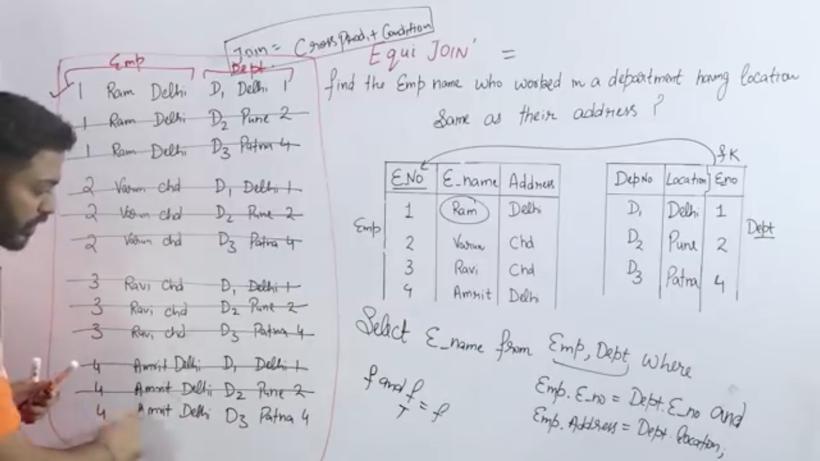 Join = Cross Prod. + Condition
Emp Dept
1 Ram Delhi D1 Delhi 1
1 Ram Delhi D2 Pune 2
1 Ram Delhi D3 Patna 4
2 Varun chd D1 Delhi 1
2 Varun chd D2 Pune 2
2 Varun chd D3 Patna 4
3 Ravi chd D1 Delhi 1
3 Ravi chd D2 Pune 2
3 Ravi chd D3 Patna 4
4 Amrit Delhi D1 Delhi 1
4 Amrit Delhi D2 Pune 2
4 Amrit Delhi D3 Patna 4
Equi JOIN =
find the Emp name who worked in a department having location
same as their address ?
Emp
E.No E_name Address
1 Ram Delhi
2 Varun Chd
3 Ravi Chd
4 Amrit Delhi
fK
DepNo Location Eno
D1 Delhi 1
D2 Pune 2
D3 Patna 4
Dept
Select E_name from Emp, Dept where
Emp. E_no = Dept. E_no and
Emp. Address = Dept. location,
f and f
T = f